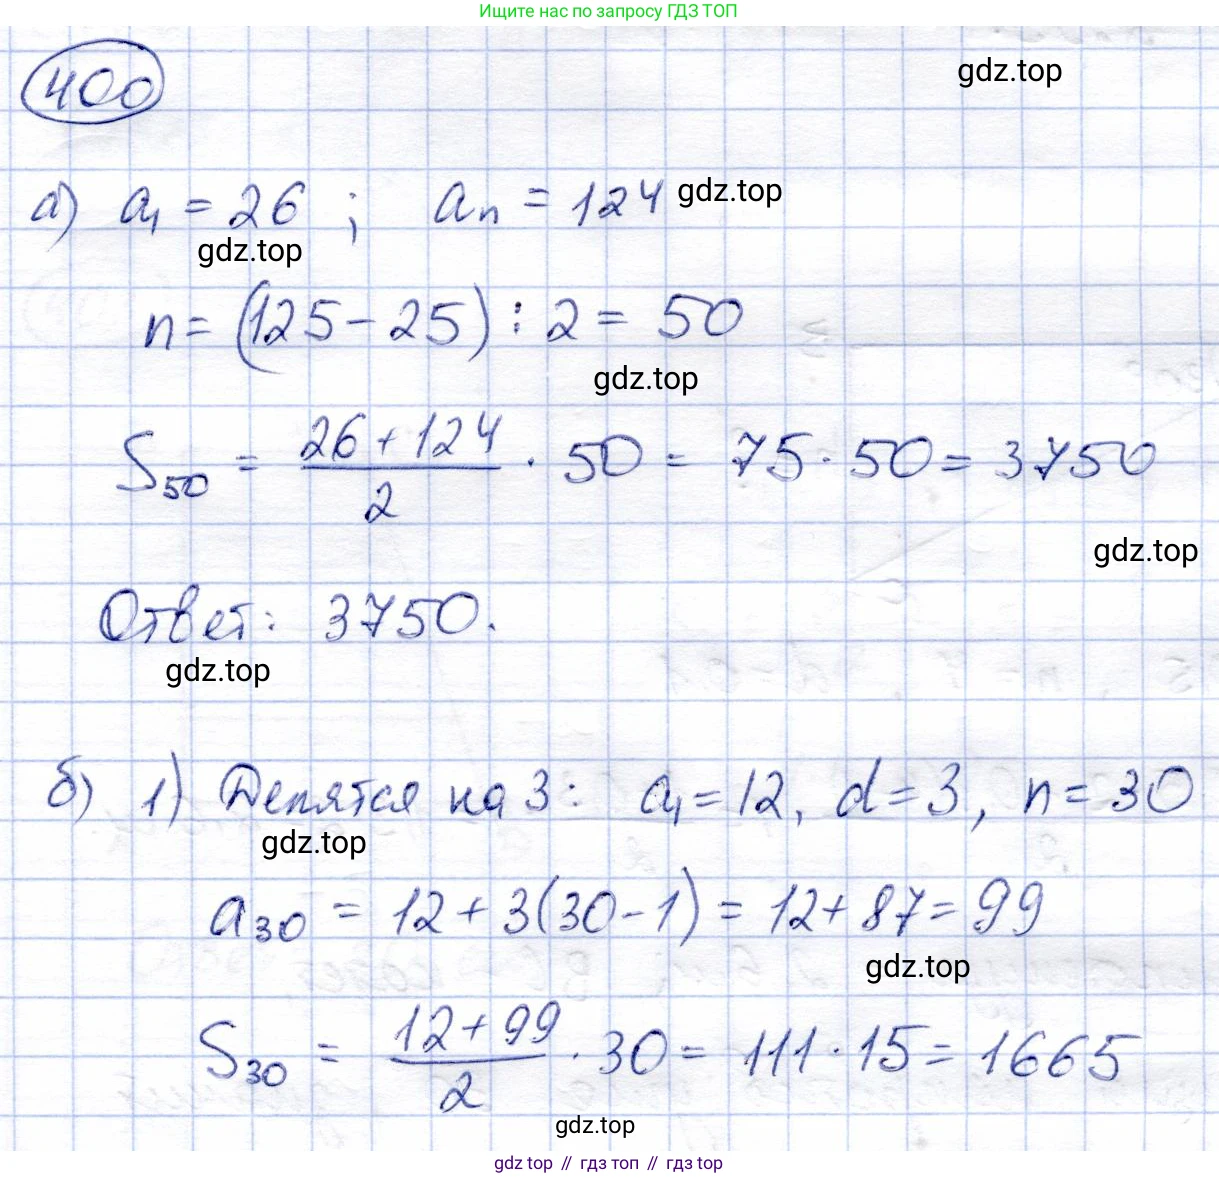 Ищите нас по запросу ГДЗ ТОП
400
gdz.top
а) a₁ = 26 ; aₙ = 124 gdz.top
gdz.top
n = (125 - 25) : 2 = 50
gdz.top
S₅₀ = (26 + 124)/2 · 50 = 75 · 50 = 3750
gdz.top
Ответ: 3750.
gdz.top
б) 1) Делятся на 3: a₁ = 12, d = 3, n = 30
gdz.top
a₃₀ = 12 + 3(30 - 1) = 12 + 87 = 99
gdz.top
S₃₀ = (12 + 99)/2 · 30 = 111 · 15 = 1665
gdz.top
gdz top // гдз топ // gdz top